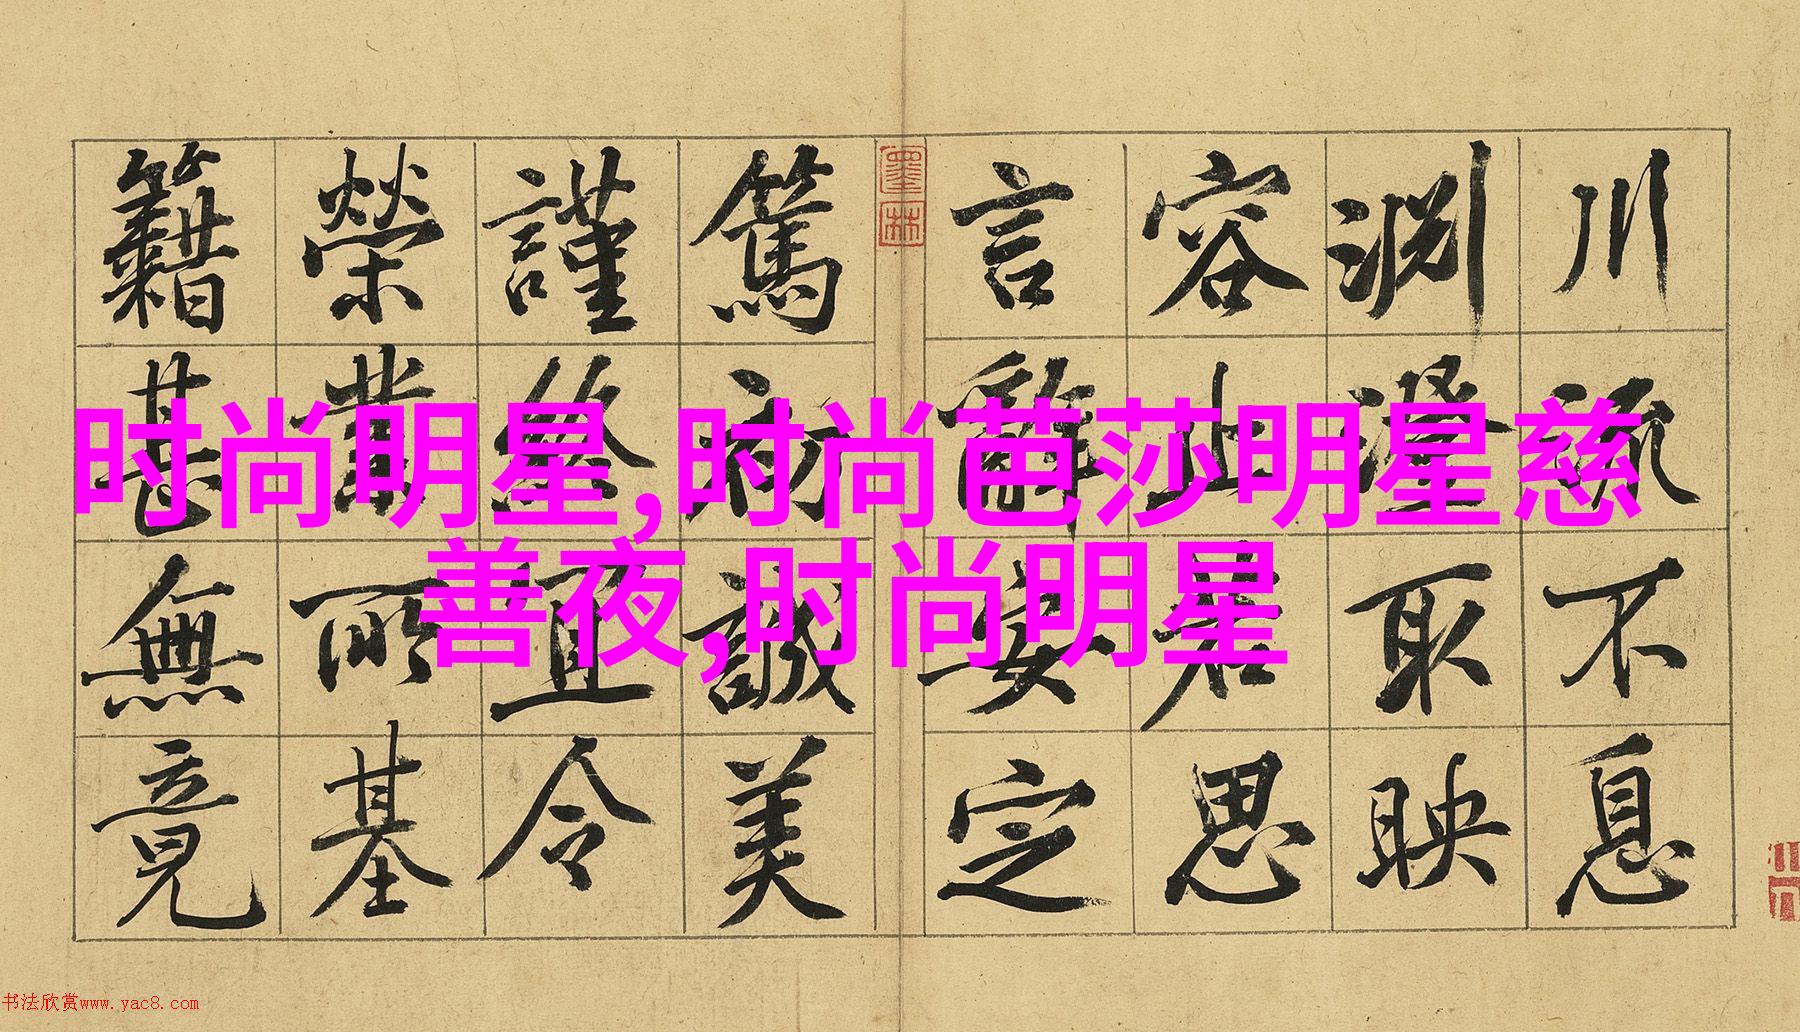 时尚明星,时尚芭莎明星慈
善夜,时尚明星
川流不息
淵澄取映
容止若思
言辭安定
篤初誠美
謹終宜令
榮業所基
籍甚無竟
墨林
书法欣赏www.yac8.com